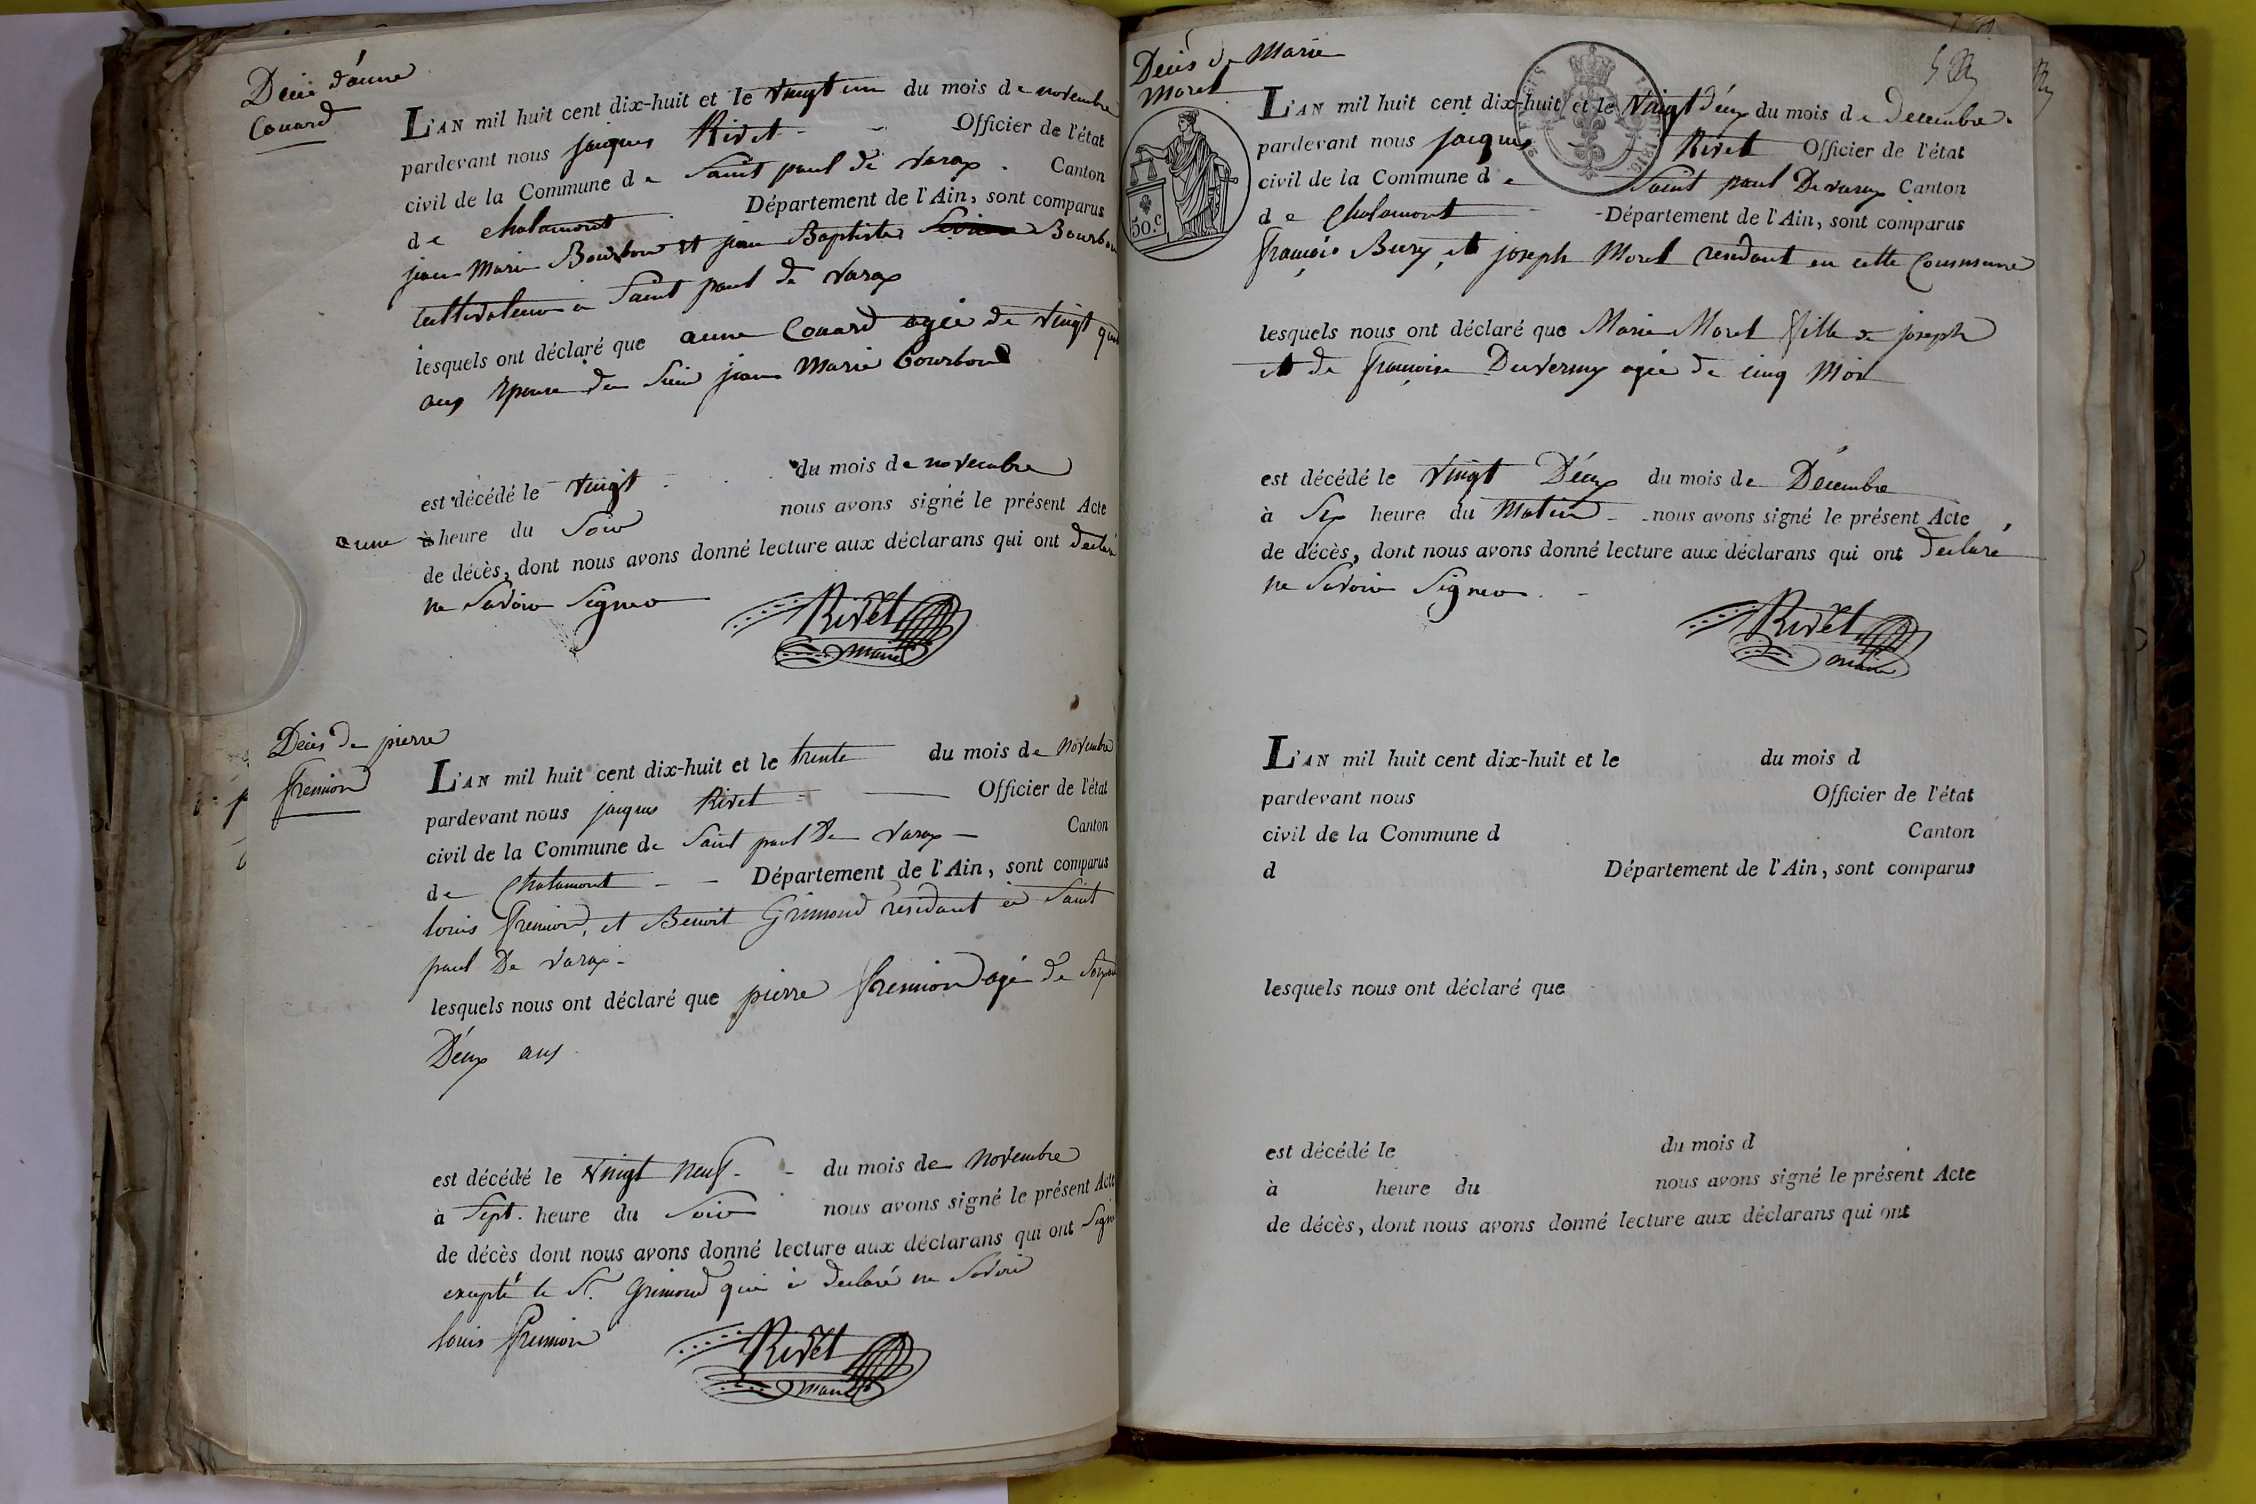 Décès d'anne
Couard
L'AN mil huit cent dix-huit et le vingt un du mois de novembre
pardevant nous jacques Rivet Officier de l'état
civil de la Commune de Saint paul de varax Canton
de Chalamont Département de l'Ain, sont comparus
jean Marie Bourbon et jean Baptiste Bourbon
cultivateurs a Saint paul de varax
lesquels ont déclaré que anne Couard agée de vingt
ans Epouse de jean Marie Bourbon
est décédé le vingt du mois de novembre
a une heure du Soir nous avons signé le présent Acte
de décès, dont nous avons donné lecture aux déclarans qui ont declaré
ne Savoir Signer
Rivet
maire
Décès de pierre
fremion
L'AN mil huit cent dix-huit et le trente du mois de Novembre
pardevant nous jacques Rivet Officier de l'état
civil de la Commune de Saint paul De varax Canton
de Chalamont Département de l'Ain, sont comparus
louis fremion, et Benoit Grimond residant à Saint
paul De varax
lesquels nous ont déclaré que pierre fremion agé de Soixante
Déux ans
est décédé le vingt neuf du mois de Novembre
à Sept heure du Soir nous avons signé le présent Acte
de décès dont nous avons donné lecture aux déclarans qui ont Signé
excepté le Sr. Grimond qui à declaré ne Savoir
louis fremion
Rivet
maire
Décès de Marie
Morel
50.c
1816
L'AN mil huit cent dix-huit et le Vingt déux du mois de Decembre
pardevant nous jacques Rivet Officier de l'état
civil de la Commune de Saint paul De varax Canton
de Chalamont Département de l'Ain, sont comparus
françois Bury et joseph Morel residant en cette Commune
lesquels nous ont déclaré que Marie Morel fille de joseph
et de françoise Duvernay agée de cinq Mois
est décédé le vingt Déux du mois de Décembre
à Six heure du Matin nous avons signé le présent Acte
de décès, dont nous avons donné lecture aux déclarans qui ont declaré
ne Savoir Signer
Rivet
maire
L'AN mil huit cent dix-huit et le du mois d
pardevant nous Officier de l'état
civil de la Commune d Canton
d Département de l'Ain, sont comparus
lesquels nous ont déclaré que
est décédé le du mois d
à heure du nous avons signé le présent Acte
de décès, dont nous avons donné lecture aux déclarans qui ont